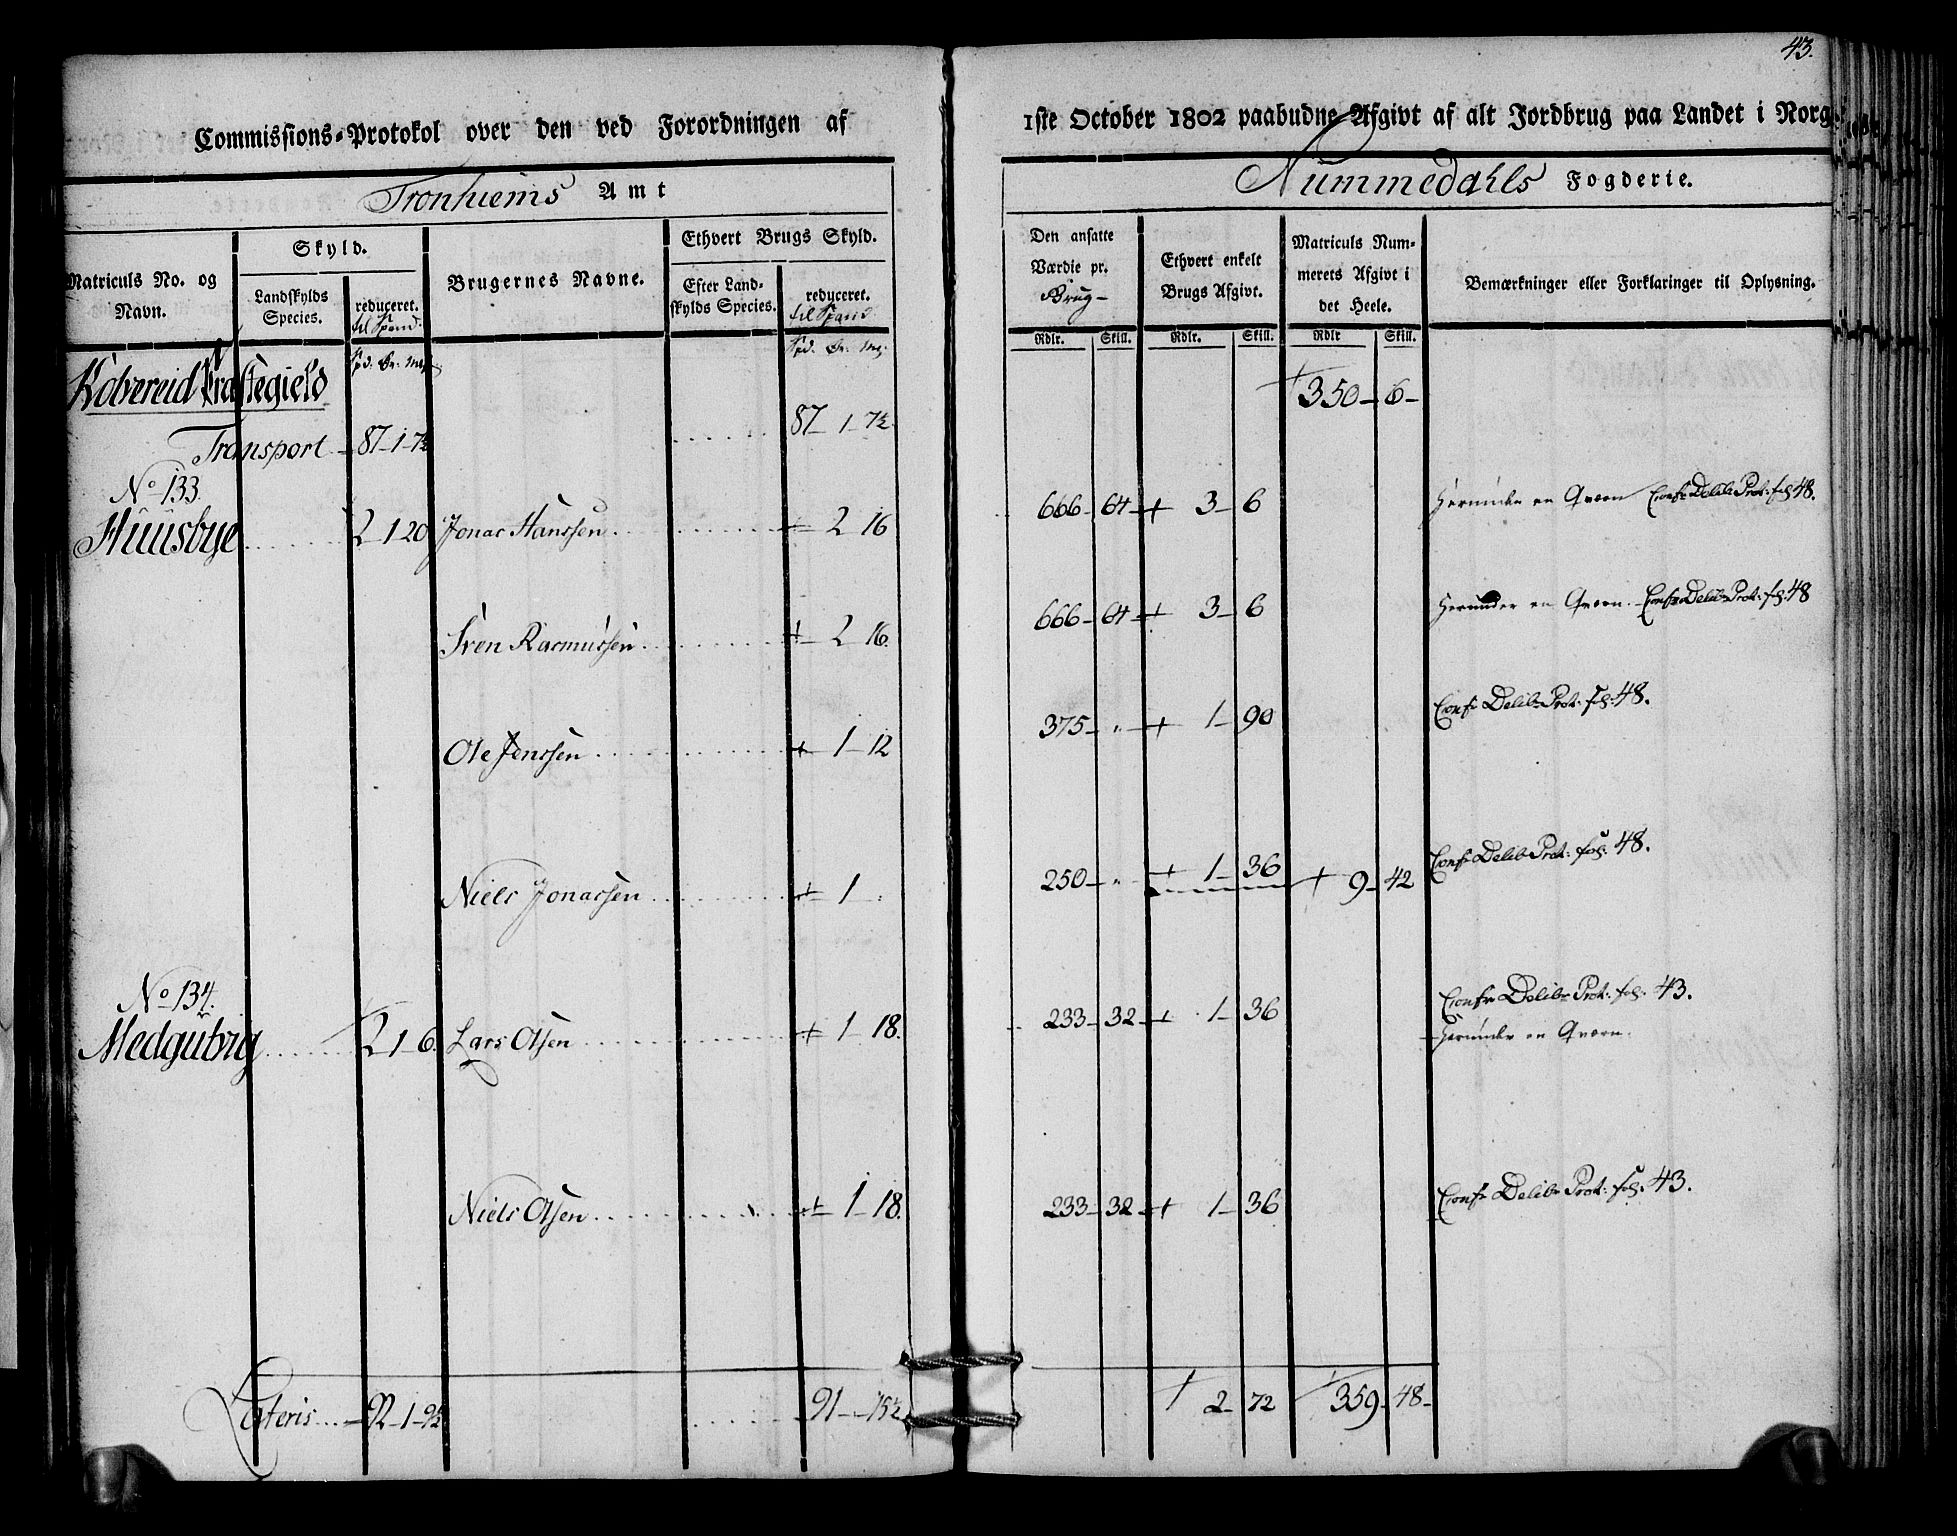 43.
Commissions-Protokol over den ved Forordningen af 1ste October 1802 paabudne Afgivt af alt Jordbrug paa Landet i Norge
Tronhiems Amt
Nummedahls Fogderie.
Matriculs No. og Navn.
Skyld.
Landskylds Species.
reduceret. til Spand.
Brugernes Navne.
Ethvert Brugs Skyld.
Efter Landskylds Species.
reduceret. til Spand
Den ansatte Værdie pr. Brug-
Ethvert enkelt Brugs Afgivt.
Matriculs Nummerets Afgivt i det Heele.
Bemærkninger eller Forklaringer til Oplysning.
Spd. Ør. Mg.
Spd. Ør. Mg.
Rdlr. Skill. Rdlr. Skill. Rdlr Skill.
Kolvereid Præstegield
350 - 6 -
Transport - 87 - 1 - 7½ 87 - 1 - 7½
No 133.
Huusbye 2 1 20 Jonas Hanssen + - 2 16 666 - 64 + 3 - 6 Herunder en Qværn Confr Delib Prot: fol 48.
Sven Rasmussen + - 2 16. 666 - 64 + 3 - 6 Herunder en Qværn. - Confr Delib Prot: fol: 48
Ole Jenssen + 1 - 12 375 - " - + 1 - 90 Confr Delib Prot: fol: 48.
Niels Jonassen + 1 250 - " + 1 - 36 + 9 - 42 Confr Delib Prot: fol: 48.
No 134.
Medgulvig 2 1 - 6. Lars Olsen + 1 - 18. 233 - 32 + 1 - 36 Confr Delib Prot: fol: 43.
Herunder en Qværn.
Niels Olsen + 1 - 18. 233 - 32 + 1 - 36 Confr Delib Prot: fol: 43.
Lateris - 92 - 1 - 9½ 91 - - 15½ 2 - 72 359 - 48 -